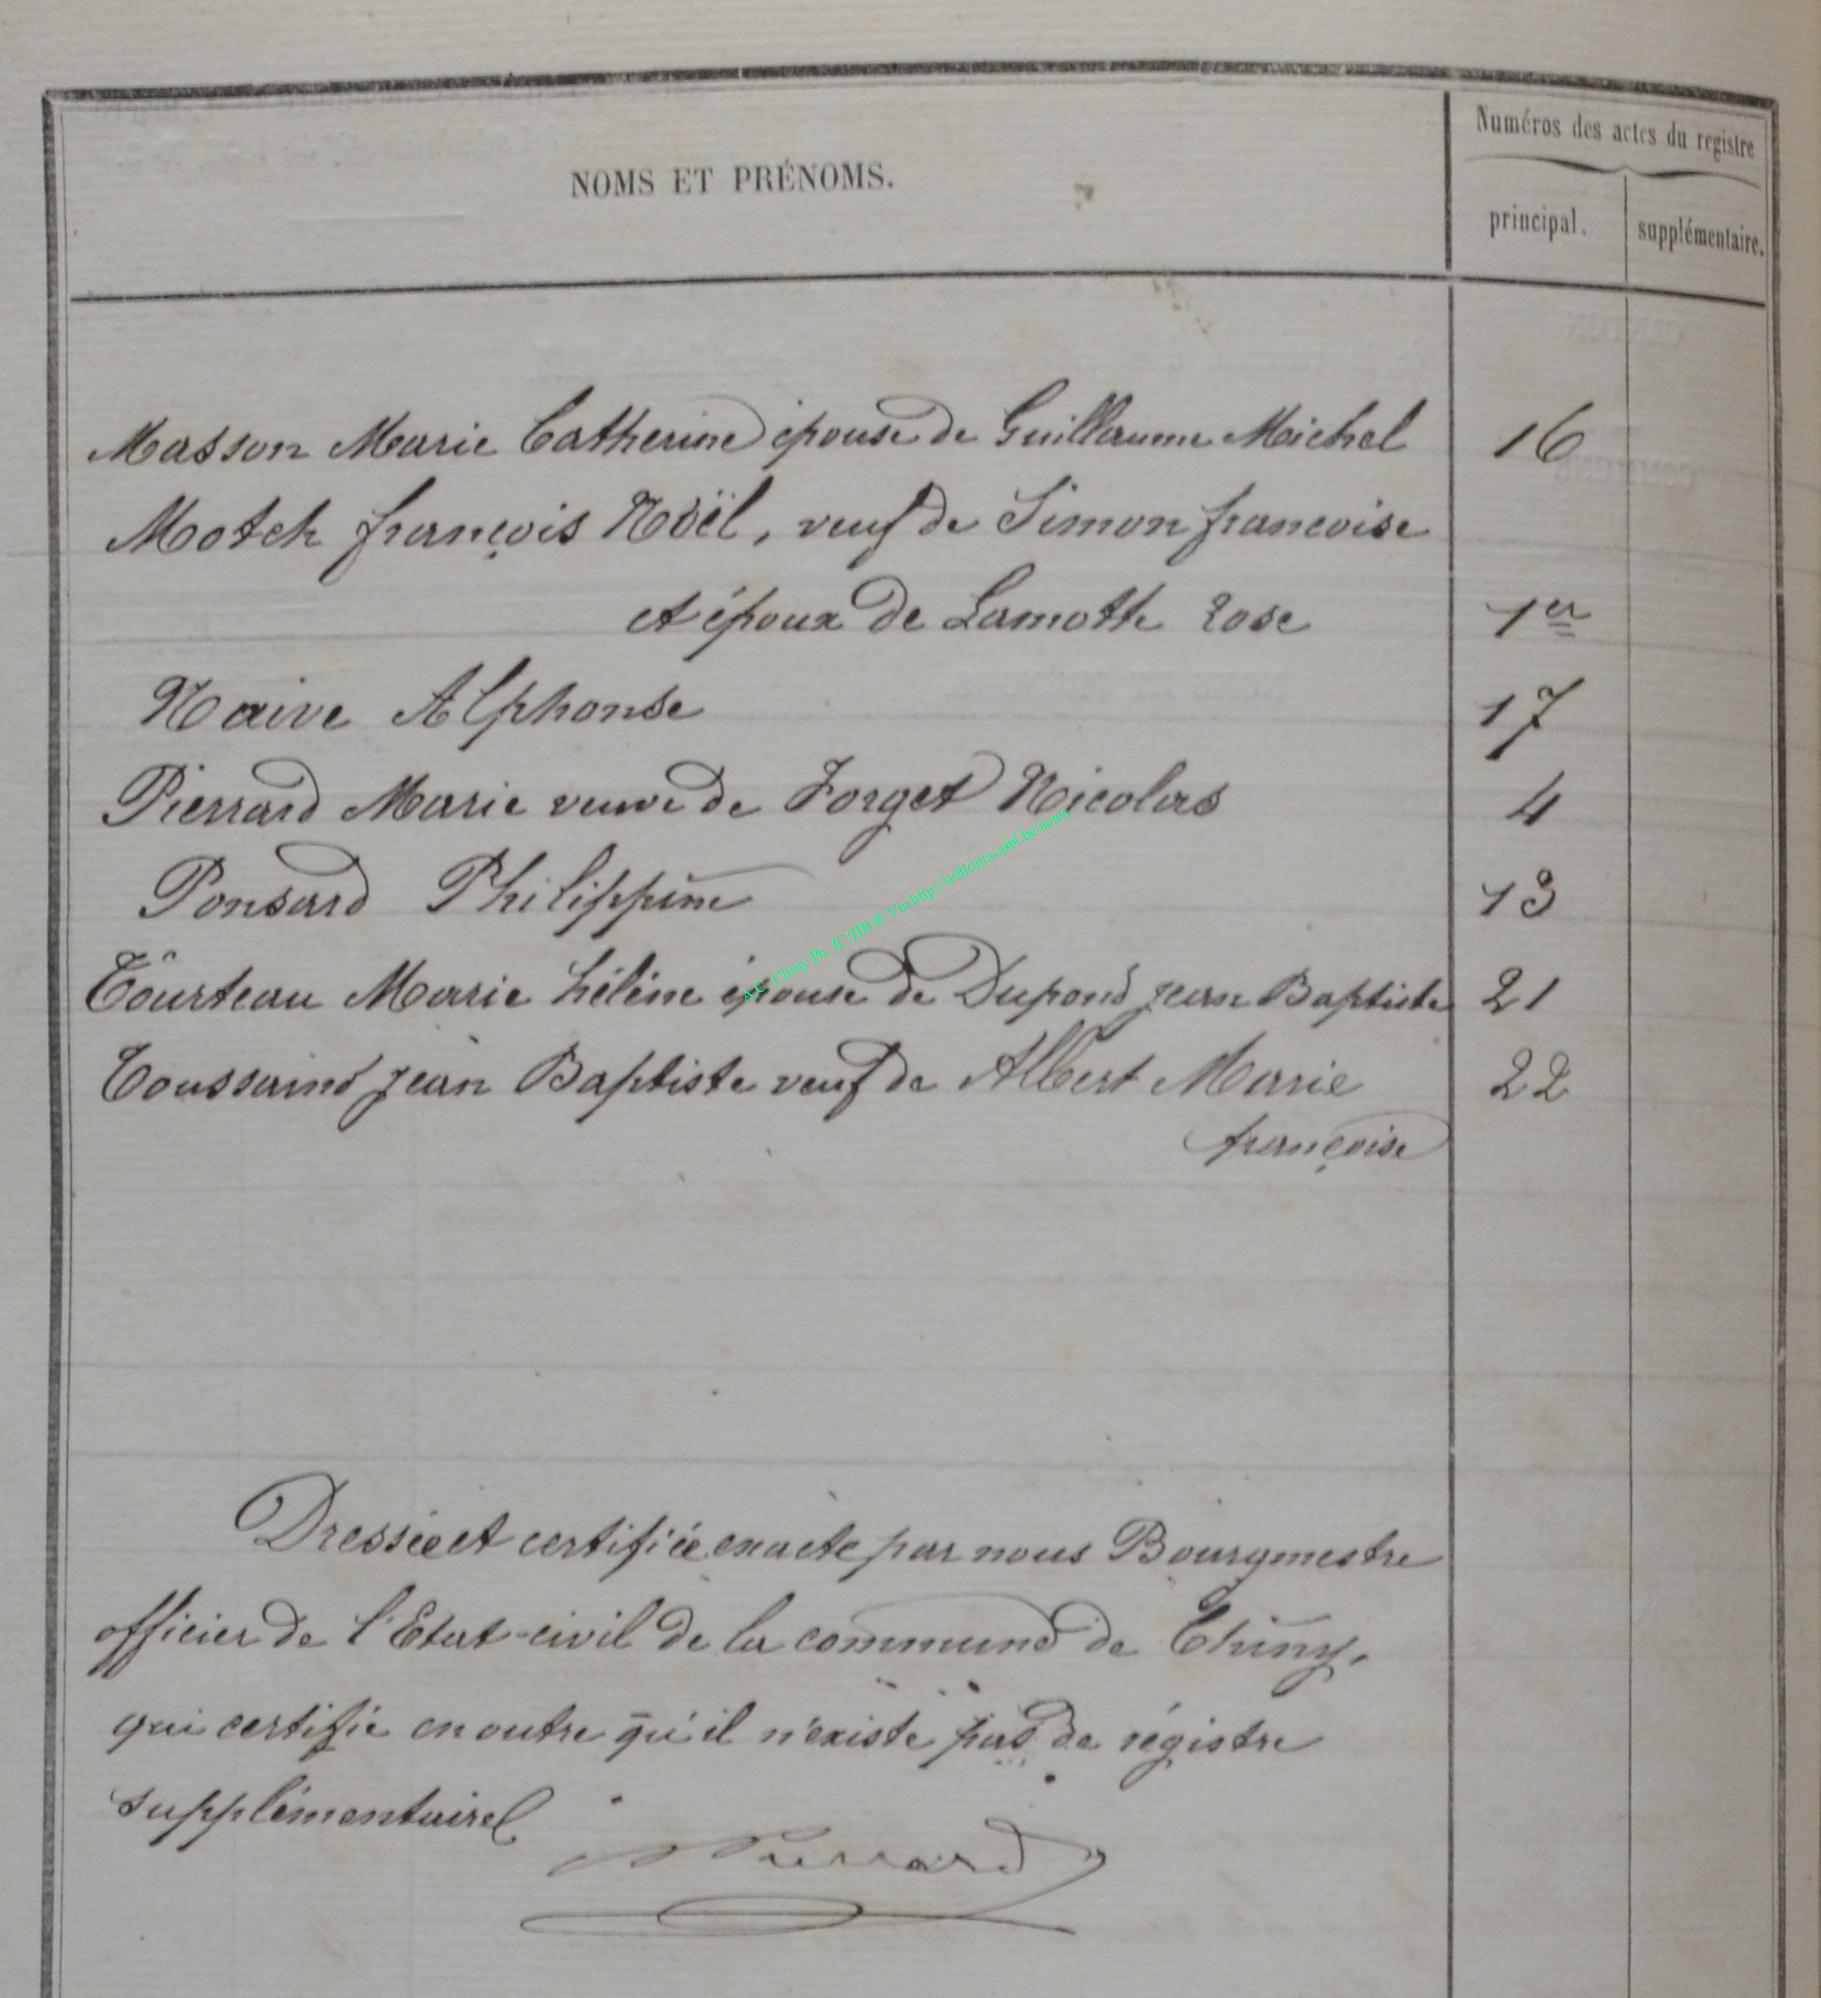 Numéros des actes du registre
NOMS ET PRÉNOMS.
principal. supplémentaire.
Masson Marie Catherine épouse de Guillaume Michel 16
Motch françois Noël, veuf de Simon francoise
et époux de Lamotte Rose 1er
Naive Alphonse 17
Pierrard Marie veuve de Forget Nicolas 4
Ponsard Philippine 13
Tourteau Marie hélène épouse de Dupond jean Baptiste 21
Toussaind jean Baptiste veuf de Albert Marie 22
françoise
A.C. Chiny Ph. JC/HB & Via http://wallonia-asbl.be/actes
Dressée et certifiée exacte par nous Bourgmestre
officier de l'Etat-civil de la commune de Chiny,
qui certifie en outre qu'il n'existe pas de régistre
supplémentaire
Pierrard